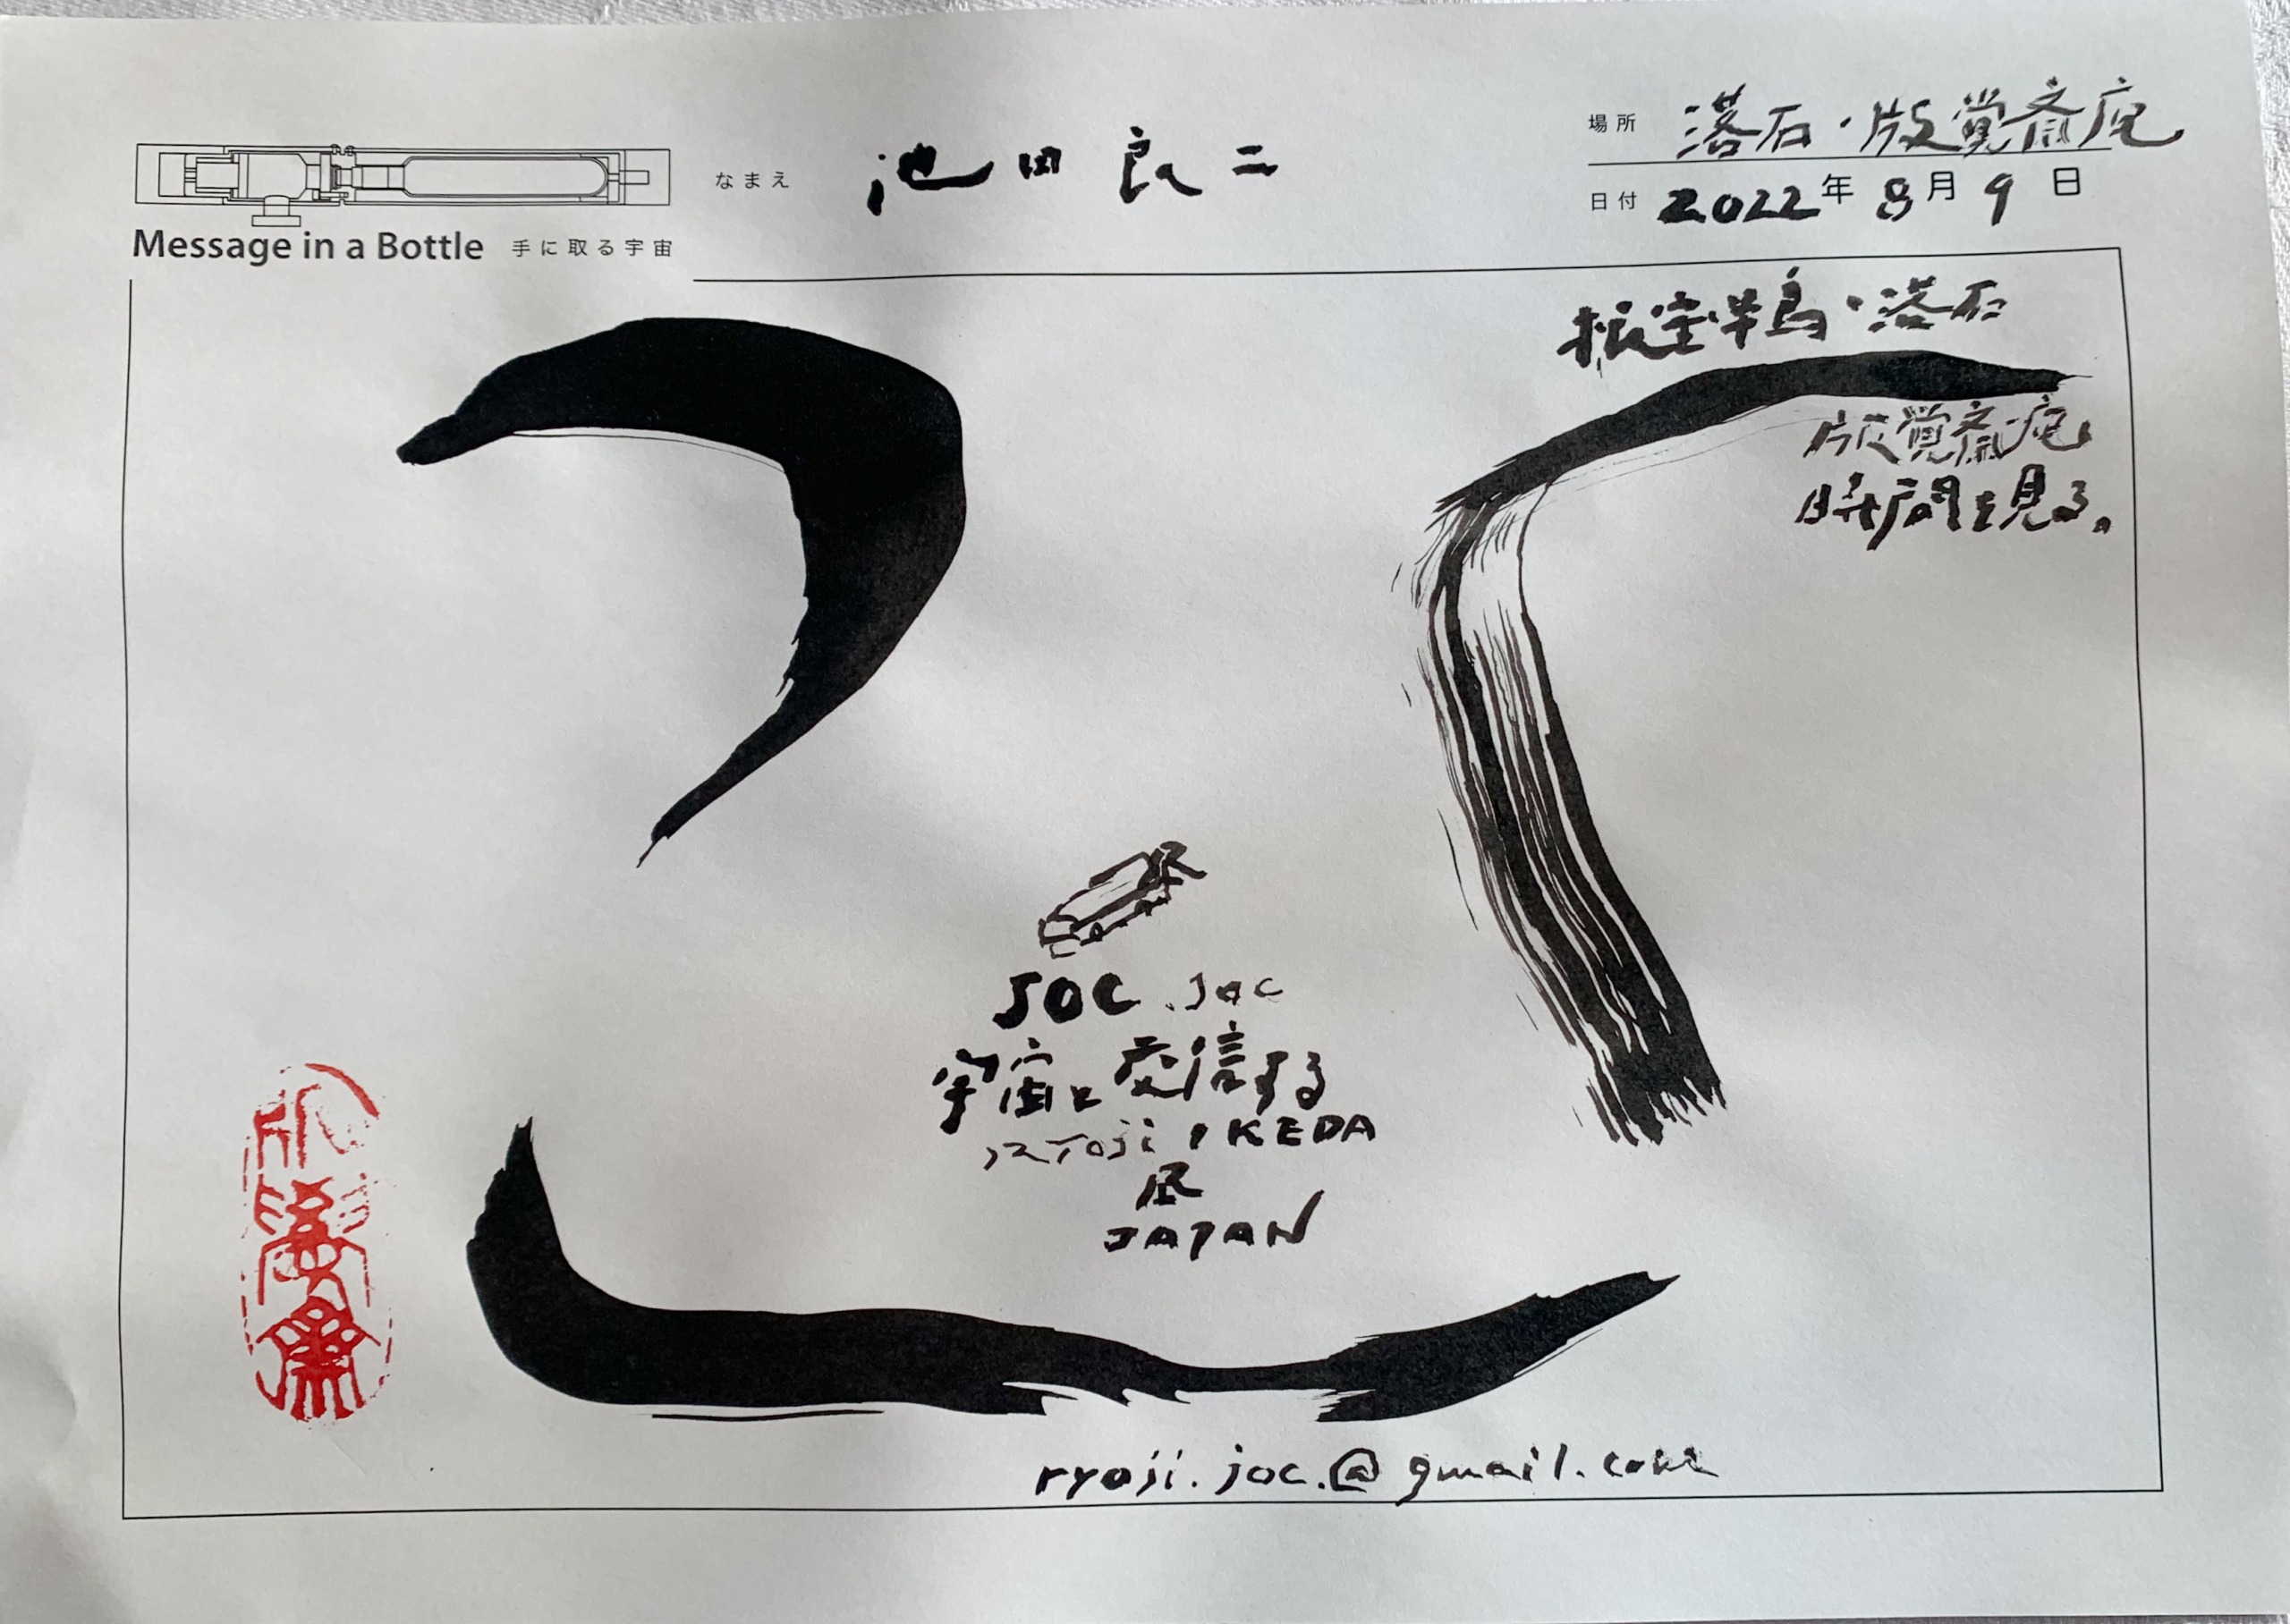 場所 落石・版覚斎庵
なまえ 池田良二
日付 2022年8月9日
Message in a Bottle 手に取る宇宙
根室半島・落石
版覚斎庵
時間を見る。
JOC.joc
宇宙と交信する
ryoji IKEDA
JAPAN
ryoji.joc.@gmail.com